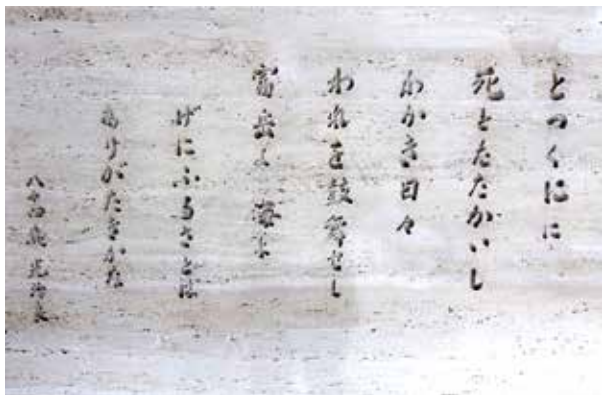 とつくにに
死とたたかいし
わかき日々
われを鼓舞せし
富岳よ海よ
げにふるさとは
ありがたきかな
八十四歳 光治良